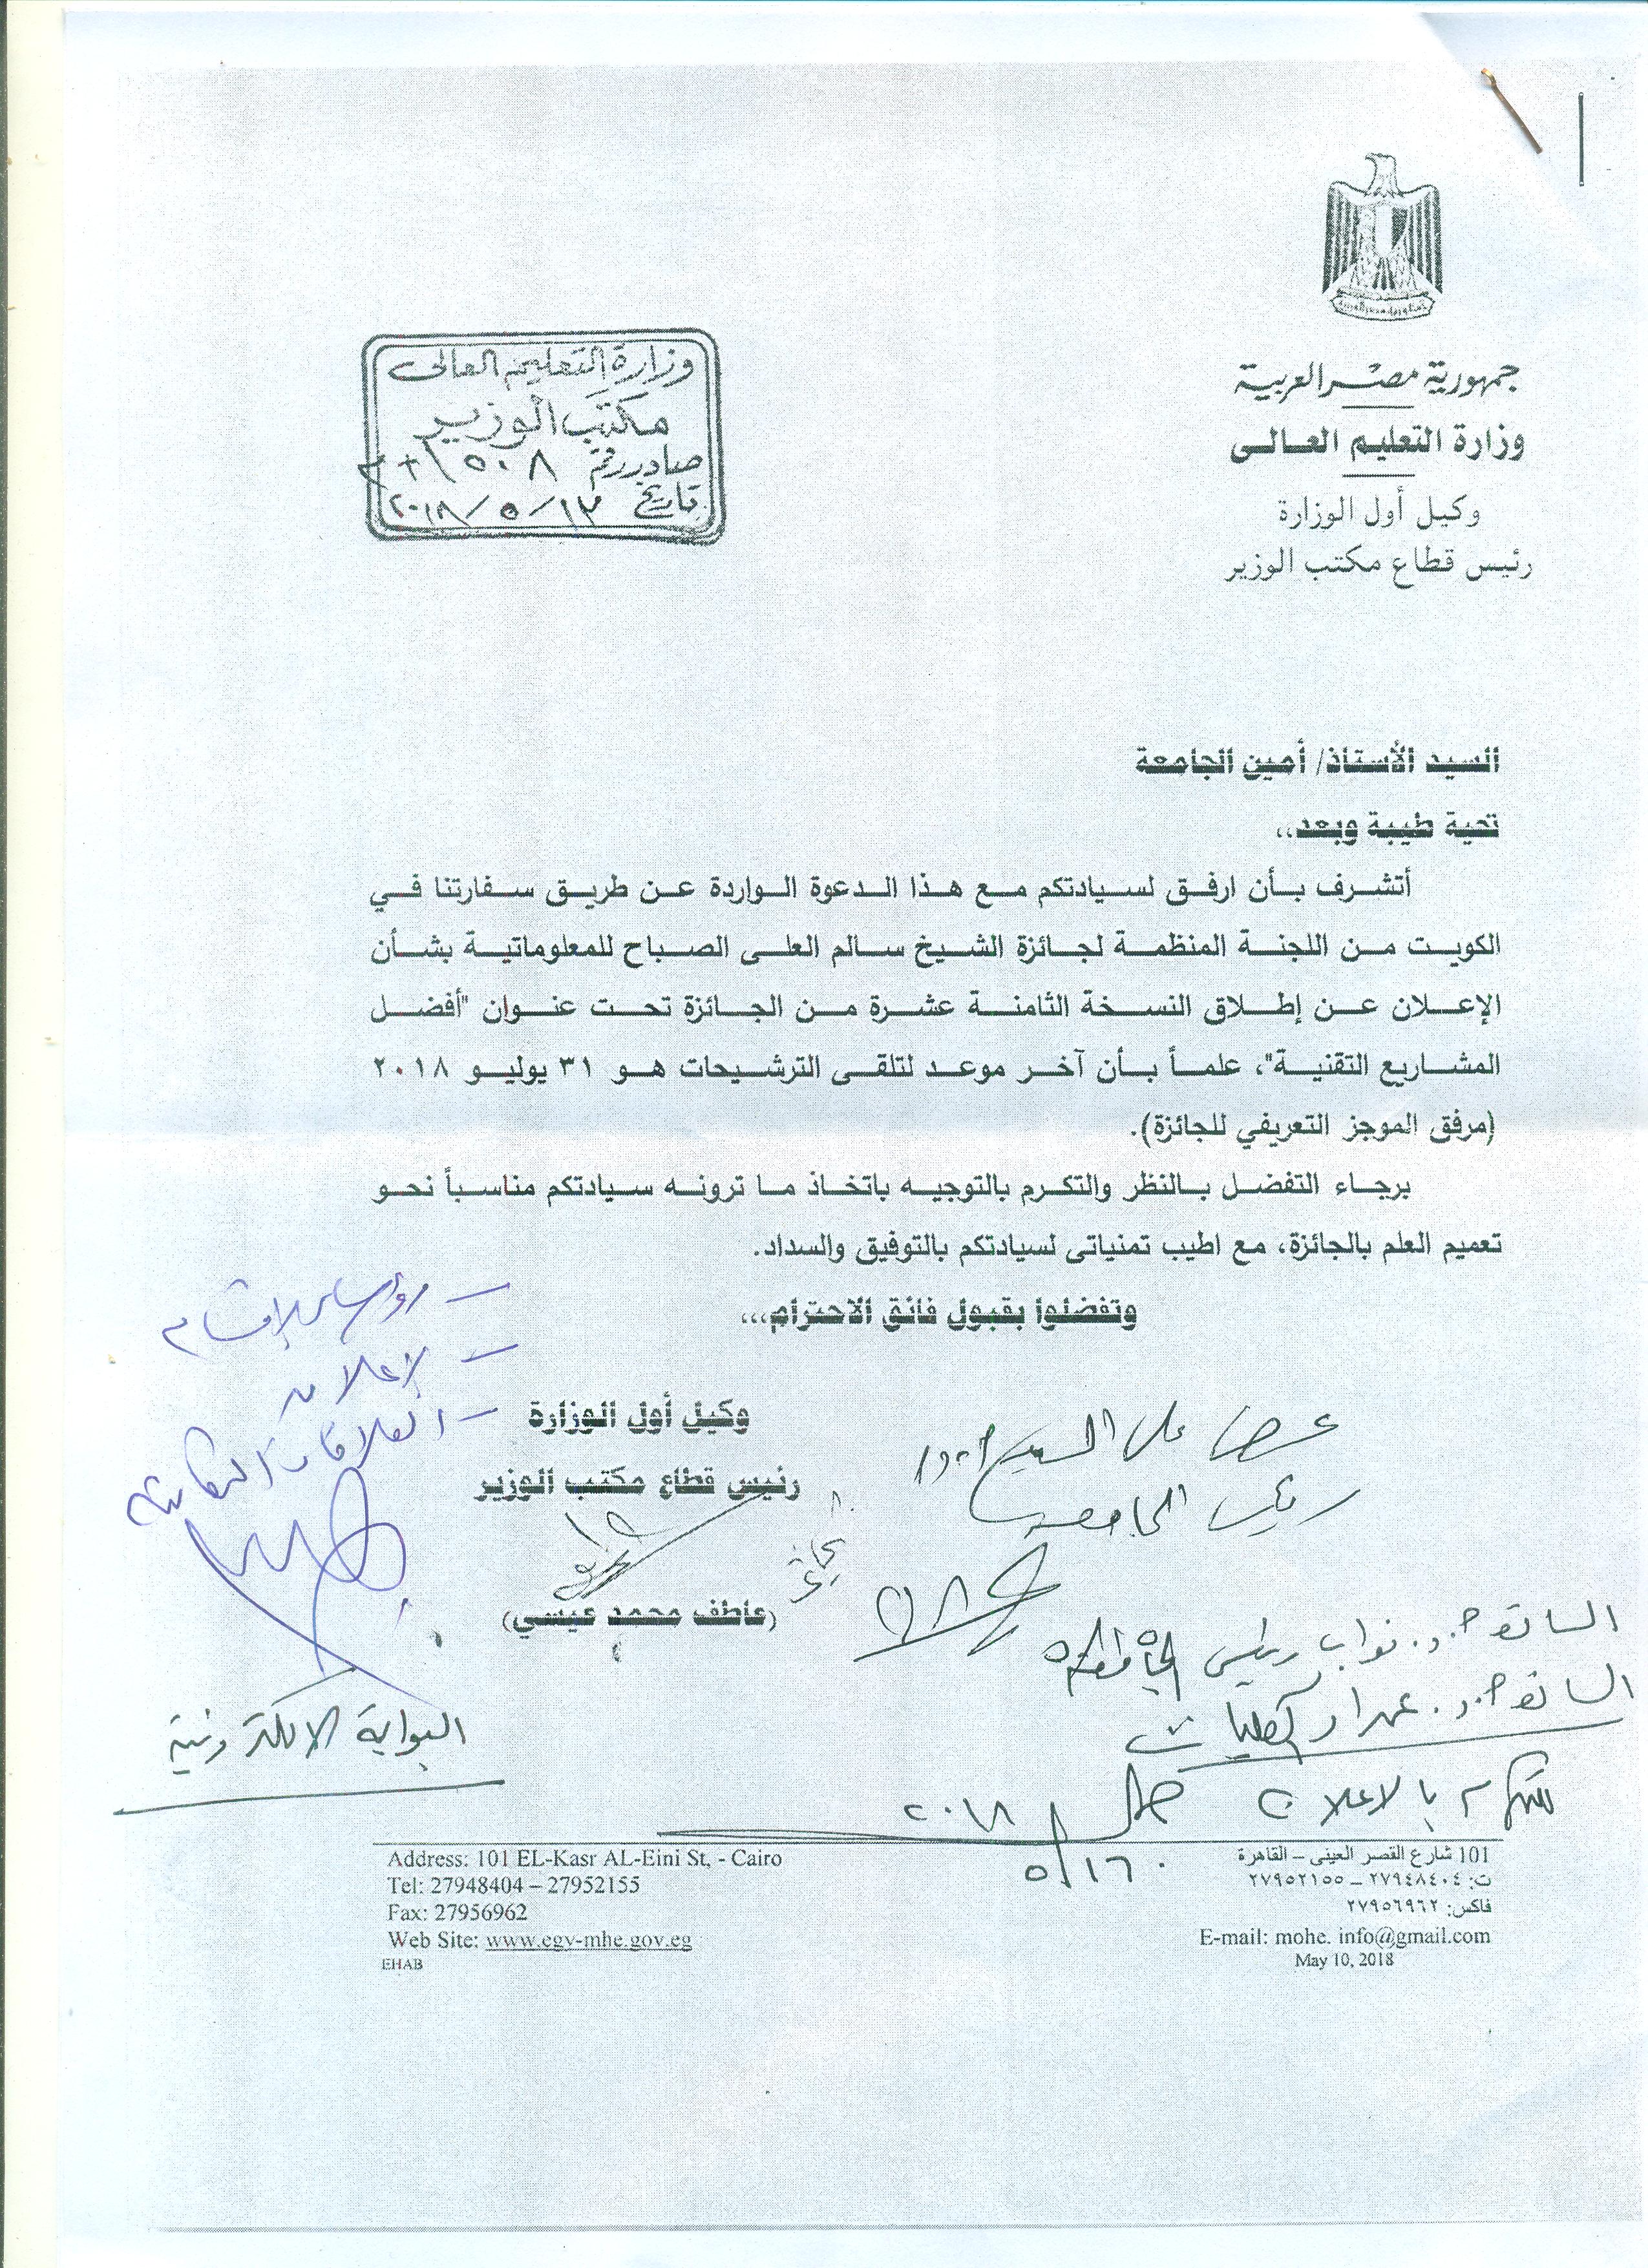 جمهورية مصر العربية
وزارة التعليم العالى
وكيل أول الوزارة
رئيس قطاع مكتب الوزير
وزارة التعليم العالى
مكتب الوزير
صادر رقم ١٥٠٨
تاريخ ١٣/٥/٢٠١٨
السيد الأستاذ/ أمين الجامعة
تحية طيبة وبعد،،
أتشرف بأن ارفق لسيادتكم مع هذا الدعوة الواردة عن طريق سفارتنا في
الكويت من اللجنة المنظمة لجائزة الشيخ سالم العلى الصباح للمعلوماتية بشأن
الإعلان عن إطلاق النسخة الثامنة عشرة من الجائزة تحت عنوان "أفضل
المشاريع التقنية"، علماً بأن آخر موعد لتلقى الترشيحات هو ٣١ يوليو ٢٠١٨
(مرفق الموجز التعريفي للجائزة).
برجاء التفضل بالنظر والتكرم بالتوجيه باتخاذ ما ترونه سيادتكم مناسباً نحو
تعميم العلم بالجائزة، مع اطيب تمنياتى لسيادتكم بالتوفيق والسداد.
وتفضلوا بقبول فائق الاحترام...
وكيل أول الوزارة
رئيس قطاع مكتب الوزير
(عاطف محمد عيسي)
عرض على السيد أ.د/
رئيس الجامعة
السادة أ.د. نواب رئيس الجامعة
السادة أ.د. عمداء الكليات
للتكرم بالاعلان
٢٠١٨
٥/١٦
– رؤساء الاقسام
– الإعلان
– العلاقات الثقافية
البوابة الالكترونية
101 شارع القصر العينى – القاهرة
ت: ٢٧٩٤٨٤٠٤ – ٢٧٩٥٢١٥٥
فاكس: ٢٧٩٥٦٩٦٢
E-mail: mohe. info@gmail.com
May 10, 2018
Address: 101 EL-Kasr AL-Eini St, - Cairo
Tel: 27948404 – 27952155
Fax: 27956962
Web Site: www.egy-mhe.gov.eg
EHAB